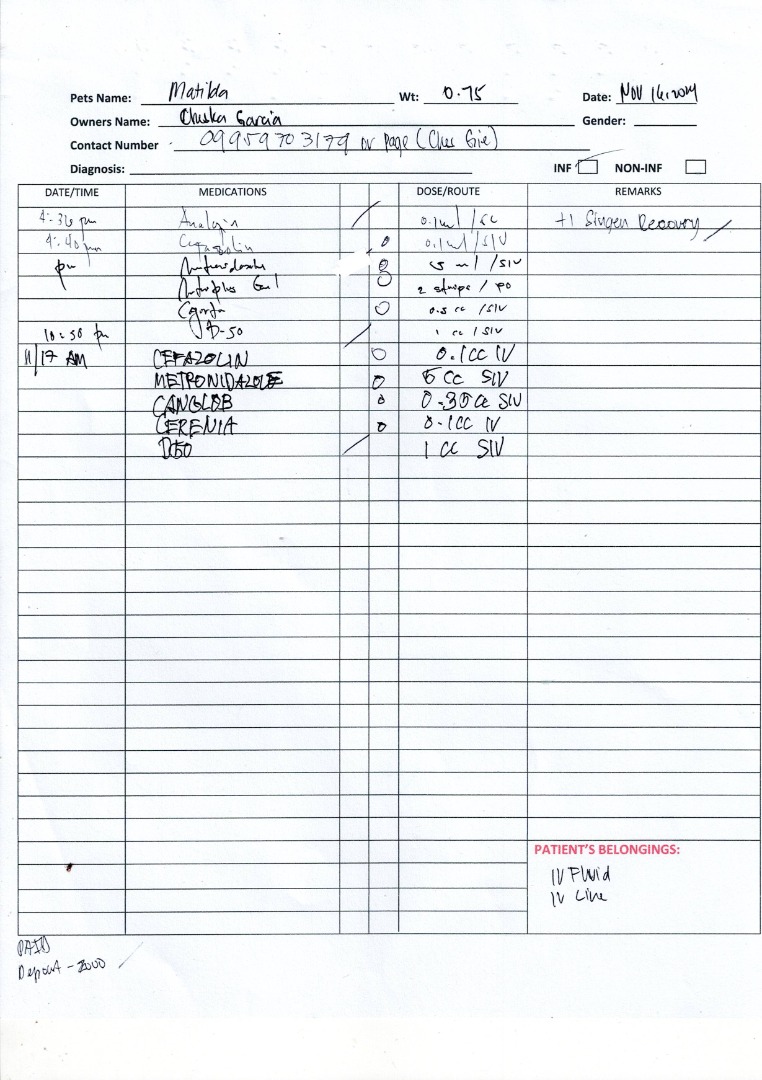 Pets Name: Matilda Wt: 0.75 Date: Nov 16, 2024
Owners Name: Garcia Gender:
Contact Number 09959703179 or page (
Diagnosis: INF NON-INF
DATE/TIME MEDICATIONS DOSE/ROUTE REMARKS
4:36 pm Analgin 0.1ml / SC +1 Recovery
4:40 pm 0.1ml / SIV
pm 5 ml / SIV
2 / PO
0.5 cc / SIV
10:50 pm D-50 1 cc / SIV
11/17 AM CEFAZOLIN 0.1cc IV
METRONIDAZOLE 5 cc SIV
CANGLOB 0.35cc SIV
CERENIA 0.1cc IV
D50 1 cc SIV
PATIENT'S BELONGINGS:
IV Fluid
IV Line
PAID
Deposit -